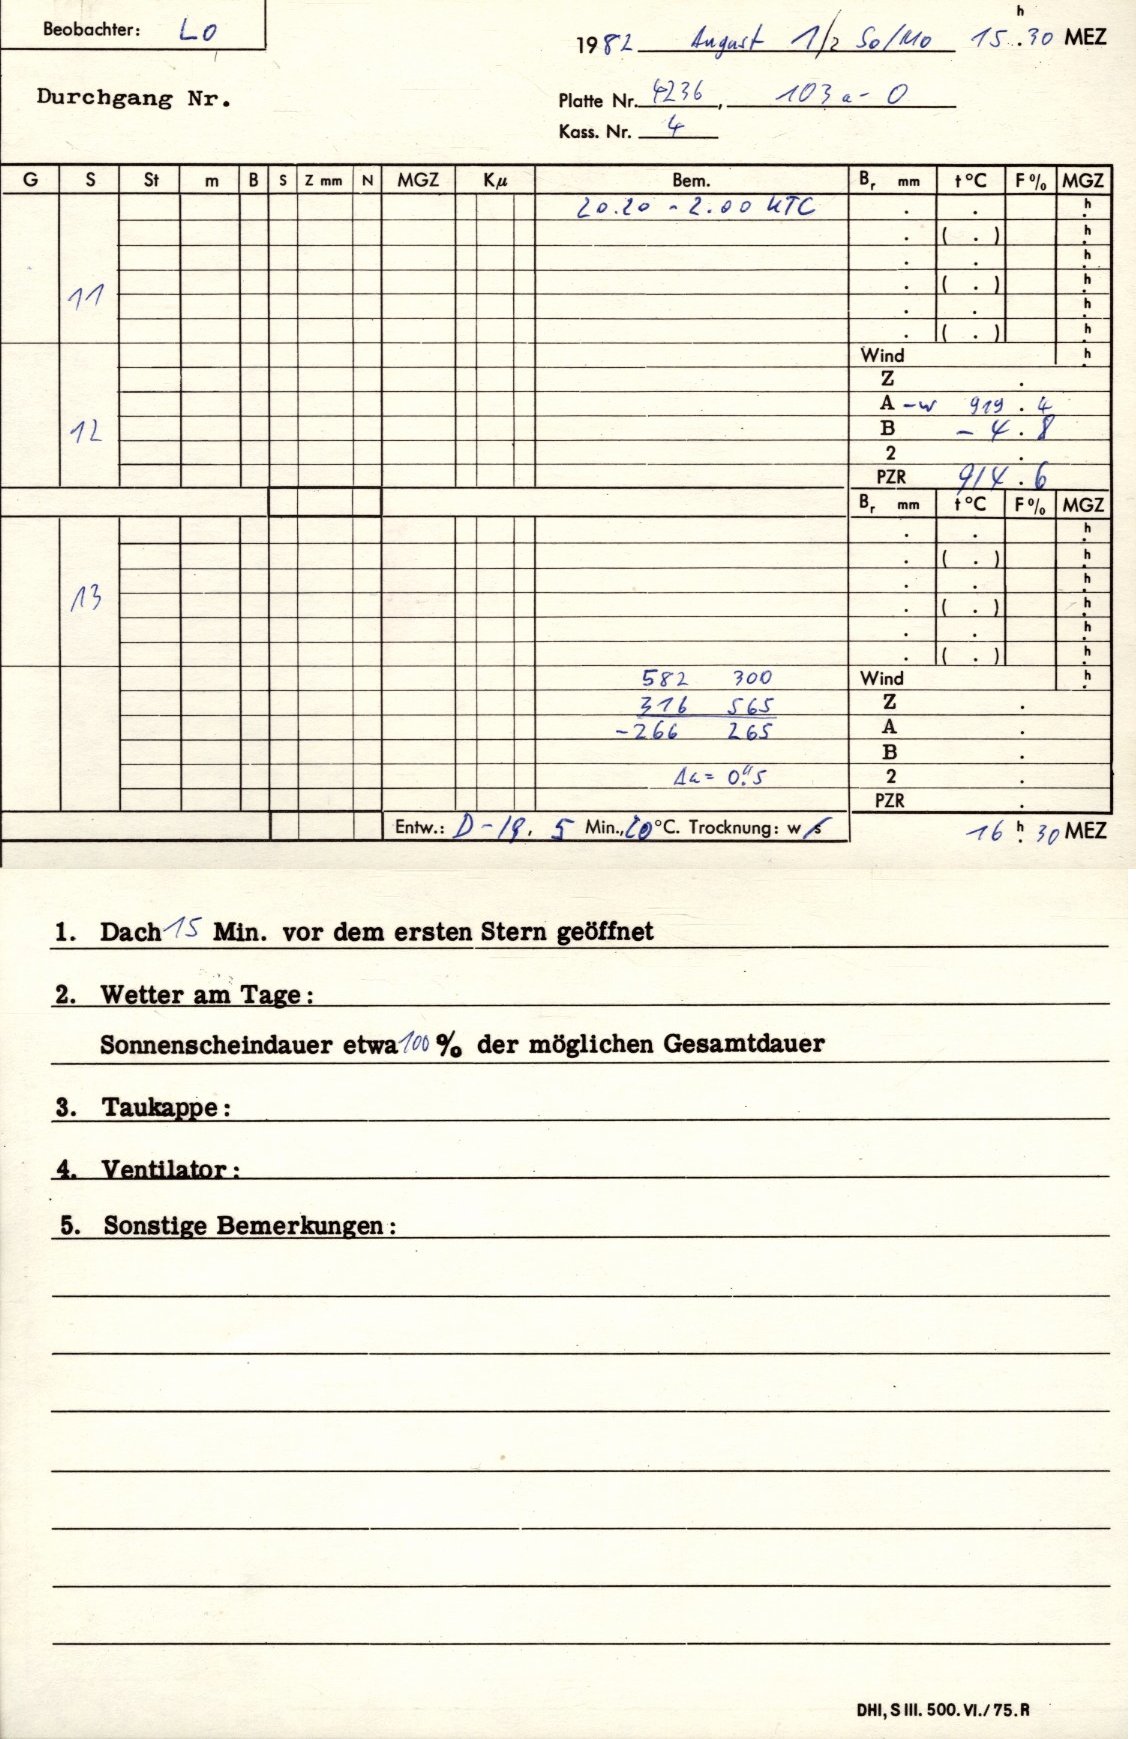 Beobachter: LO
h
1982 August 1/2 So/Mo 15.30 MEZ
Durchgang Nr.
Platte Nr. 4236, 103a-O
Kass. Nr. 4
G S St m B S Z mm N MGZ Kμ Bem. Br mm t°C F% MGZ
20.20 - 2.00 UTC . . h
. ( . ) h
. . h
11 . ( . ) h
. . h
. ( . ) h
Wind h
Z .
A -w 919.4
12 B -4.8
2 .
PZR 914.6
Br mm t°C F% MGZ
. . h
. ( . ) h
. . h
13 . ( . ) h
. . h
. ( . ) h
582 300 Wind h
316 565 Z .
-266 265 A .
B .
Δa = 0."5 2 .
PZR .
Entw.: D-19, 5 Min., 20°C. Trocknung: w/s 16 h 30 MEZ
1. Dach 15 Min. vor dem ersten Stern geöffnet
2. Wetter am Tage:
Sonnenscheindauer etwa 100 % der möglichen Gesamtdauer
3. Taukappe:
4. Ventilator:
5. Sonstige Bemerkungen:
DHI, S III. 500. VI./75. R